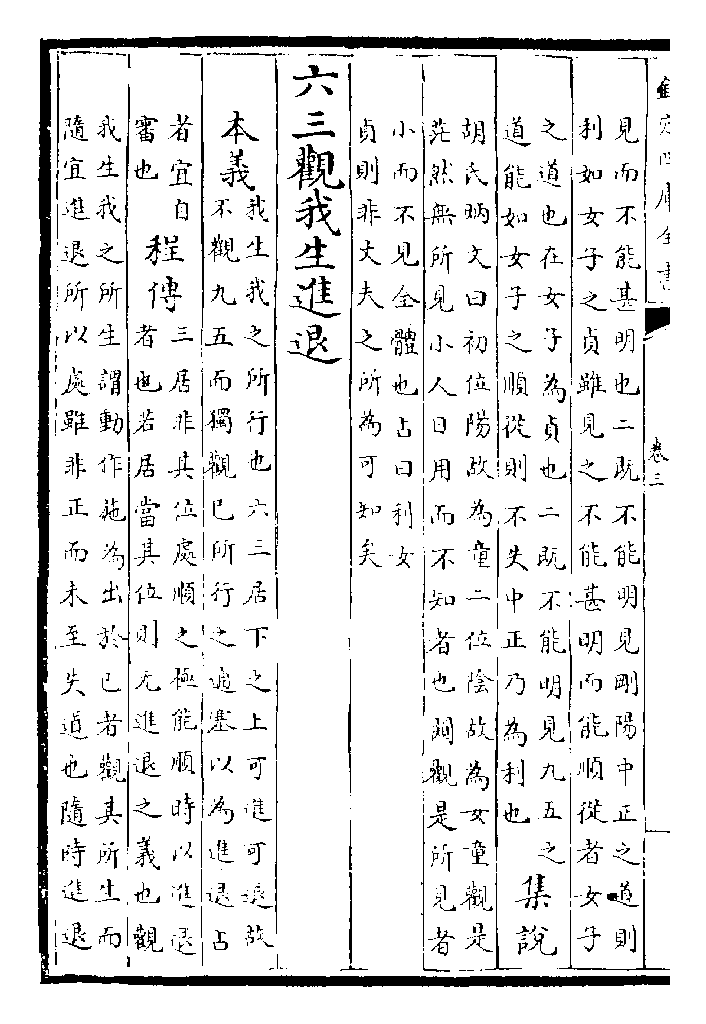 欽定四庫全書
卷三
見而不能甚明也二既不能明見剛陽中正之道則
利如女子之貞雖見之不能甚明而能順從者女子
之道也在女子為貞也二既不能明見九五之
道能如女子之順從則不失中正乃為利也
集說
胡氏炳文曰初位陽故為童二位陰故為女童觀是
茫然無所見小人日用而不知者也闚觀是所見者
小而不見全體也占曰利女
貞則非丈夫之所為可知矣
六三觀我生進退
本義
我生我之所行也六三居下之上可進可退故
不觀九五而獨觀已所行之通塞以為進退占
者宜自
審也
程傳
三居非其位處順之極能順時以進退
者也若居當其位則无進退之義也觀
我生我之所生謂動作施為出於已者觀其所生而
隨宜進退所以處雖非正而未至失道也隨時進退